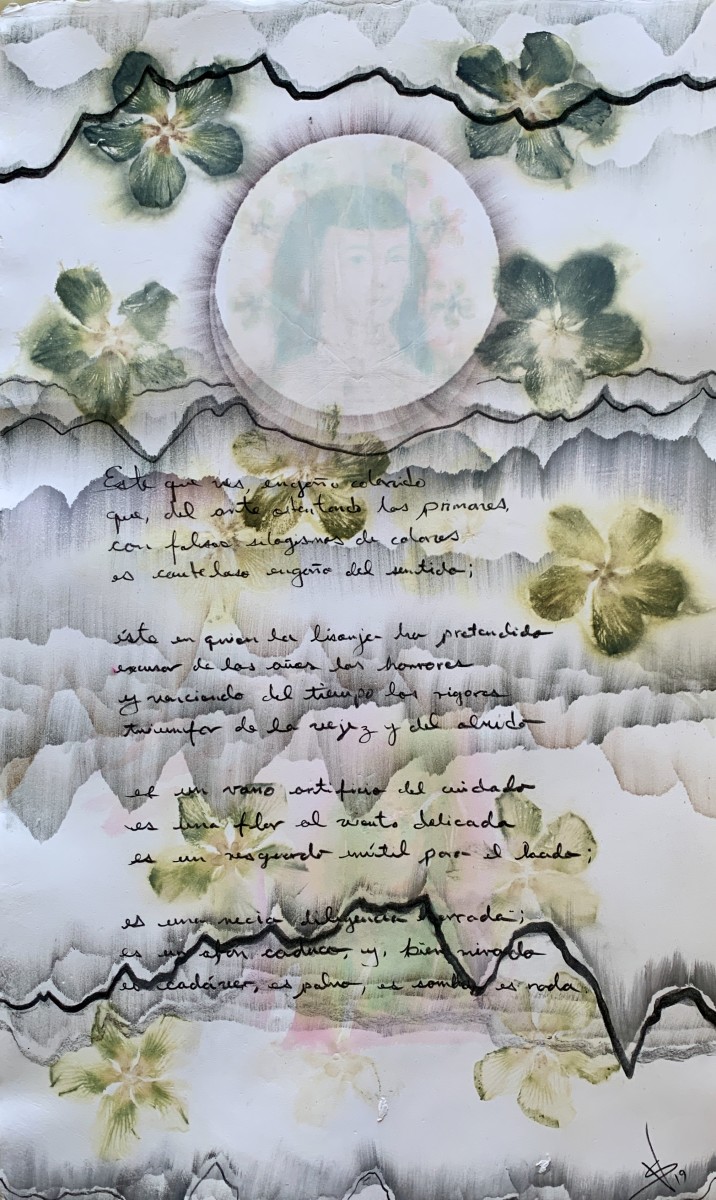 Este que ves, engaño colorido
que, del arte ostentando los primores,
con falsos silogismos de colores
es cauteloso engaño del sentido;
éste en quien la lisonja ha pretendido
excusar de los años los horrores
y venciendo del tiempo los rigores
triunfar de la vejez y del olvido
es un vano artificio del cuidado
es una flor al viento delicada
es un resguardo inútil para el hado;
es una necia diligencia errada;
es un afán caduco, y, bien mirado
es cadáver, es polvo, es sombra, es nada.
19